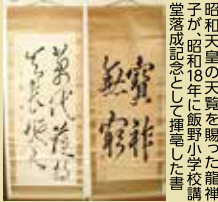 昭和天皇の天覧を賜った龍禅
子が、昭和18年に飯野小学校講
堂落成記念として揮毫した書
寶祚
無窮
萬代